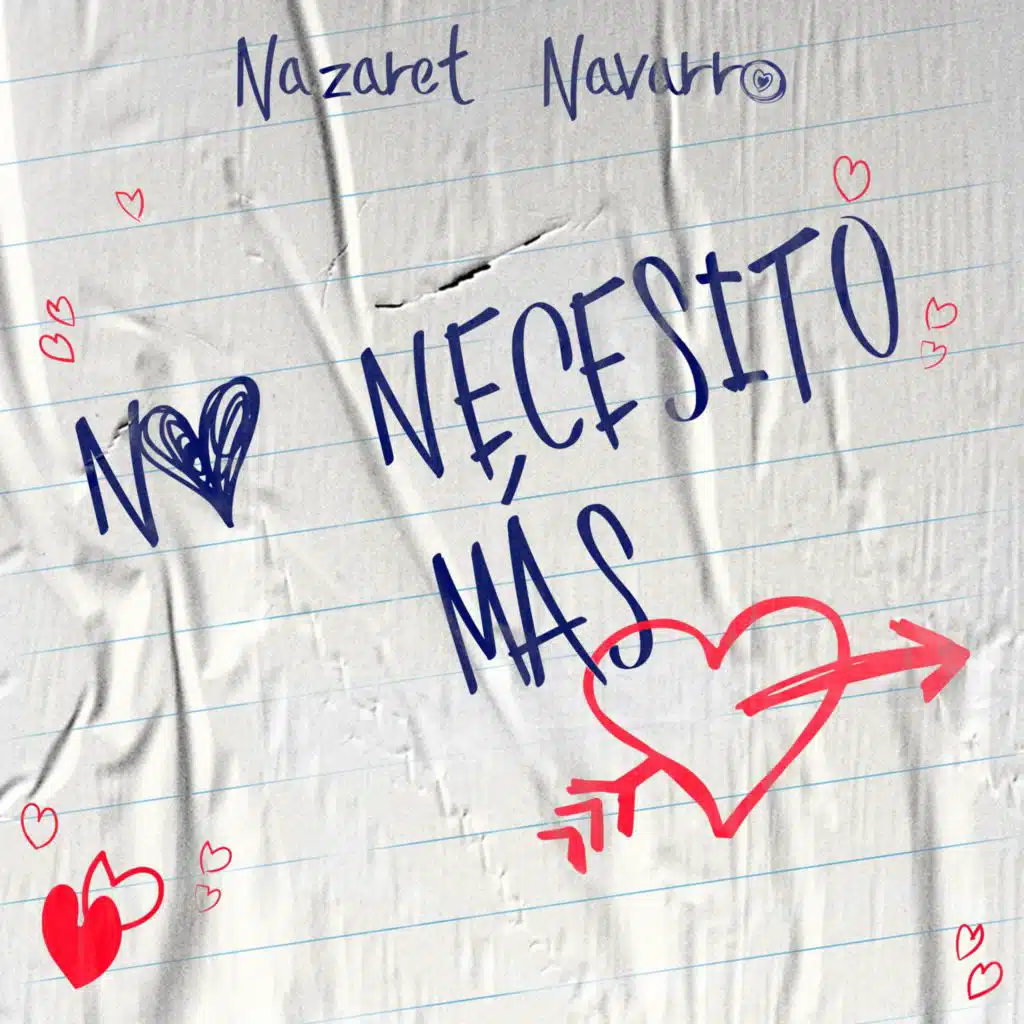 Nazaret Navarro
NO NECESITO
MÁS